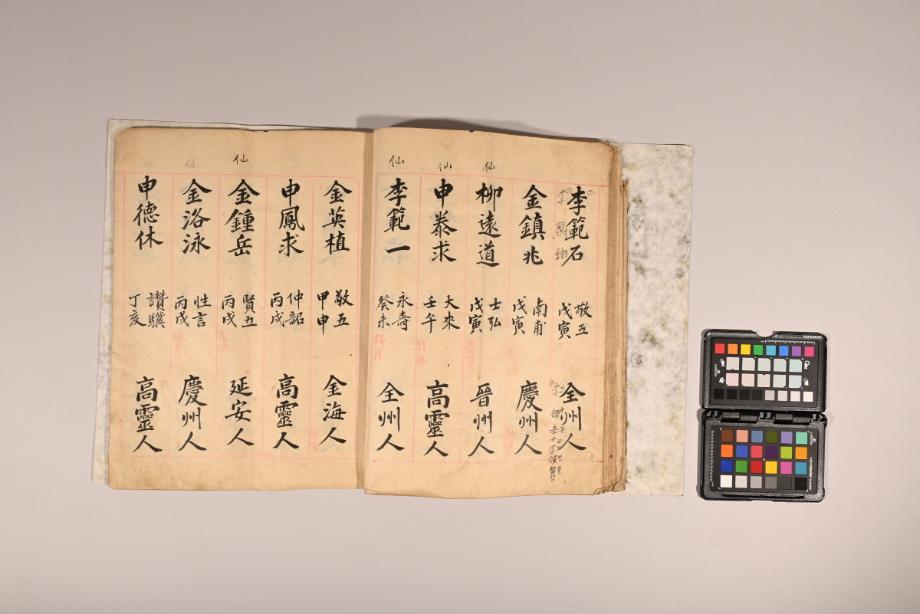 李範石 敬五 戊寅 全州人
金鎮兆 南甫 戊寅 慶州人
仙 柳遠道 士弘 戊寅 晉州人
仙 申泰求 大來 壬午 高靈人
仙 李範一 永壽 癸未 全州人
金英植 敬五 甲申 金海人
申鳳求 仲韶 丙戌 高靈人
仙 金鍾岳 賢五 丙戌 延安人
仙 金洛泳 性言 丙戌 慶州人
申德休 讚驥 丁亥 高靈人